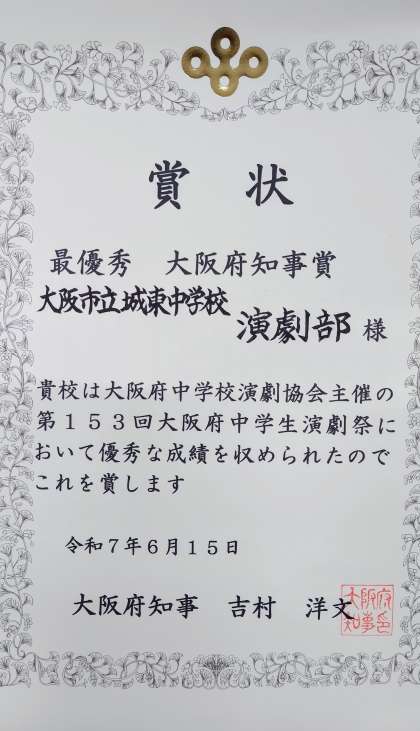 賞状
最優秀　大阪府知事賞
大阪市立城東中学校
演劇部 様
貴校は大阪府中学校演劇協会主催の
第１５３回大阪府中学生演劇祭に
おいて優秀な成績を収められたので
これを賞します
令和７年６月１５日
大阪府知事　吉村　洋文
大阪府
知事印